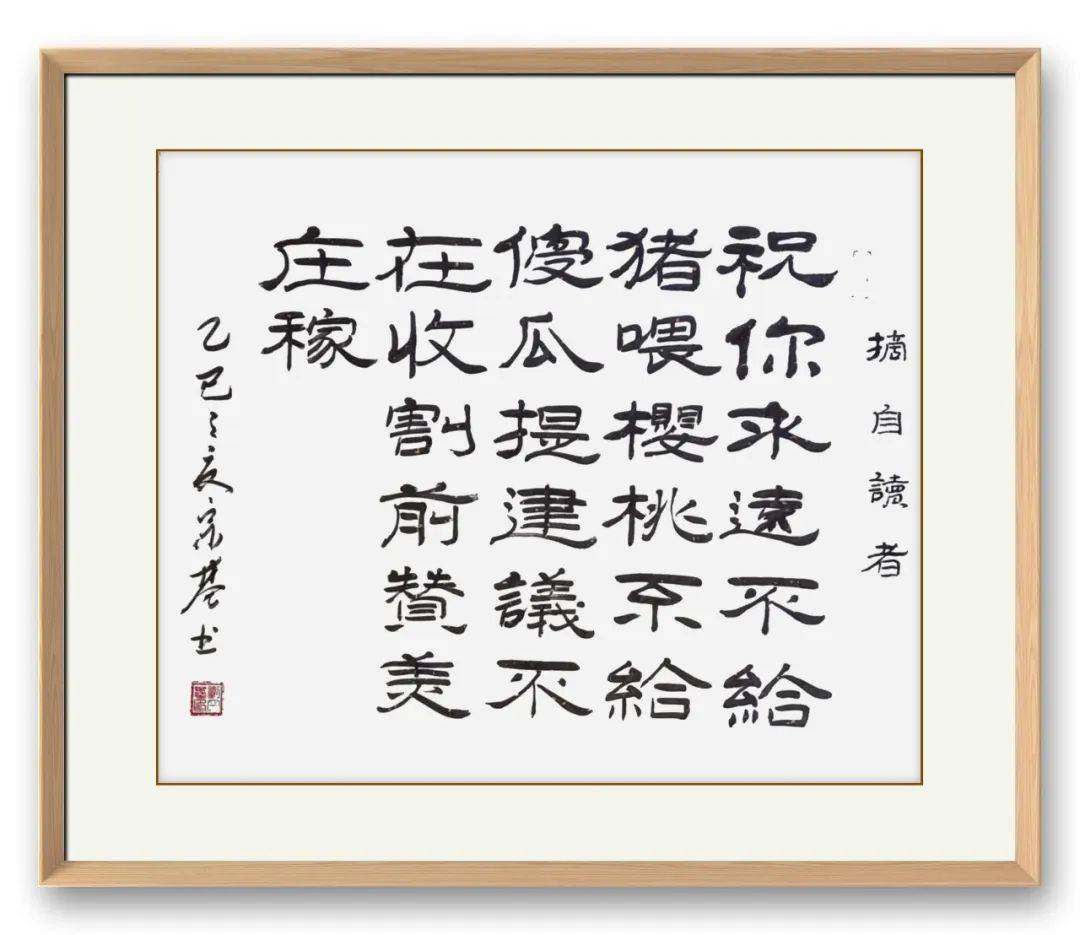 摘自讀者
祝你永遠不給
猪喂櫻桃不給
傻瓜提建議不
在收割前賛美
庄稼
乙巳之夏宗基书